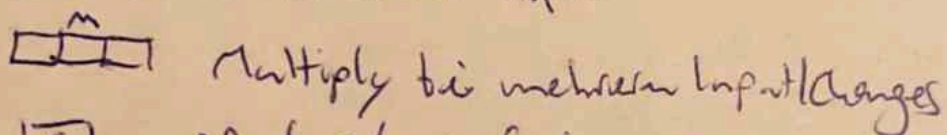 m
Multiply bei mehreren Input/Changes